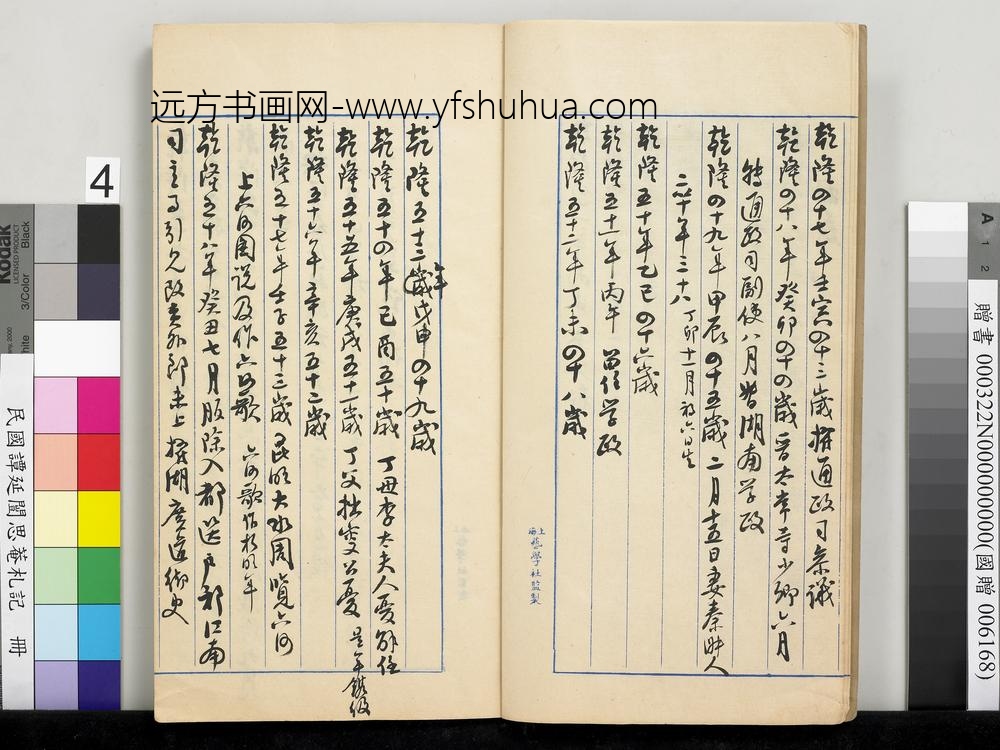 远方书画网-www.yfshuhua.com
乾隆四十七年壬寅四十三歲擢通政司參議
乾隆四十八年癸卯四十四歲晉太常寺少卿六月
轉通政司副使八月督湖南學政
乾隆四十九年甲辰四十五歲二月十五日妻秦淑人
二年三十八丁卯十一月初六日生
乾隆五十年乙巳四十六歲
乾隆五十一年丙午留任學政
乾隆五十二年丁未四十八歲
上海藝學社監製
乾隆五十三歲年戊申四十九歲
乾隆五十四年己酉五十歲丁母李太夫人憂解任
乾隆五十五年庚戌五十一歲丁父拙叟公憂是年鐫級
乾隆五十六年辛亥五十二歲
乾隆五十七年壬子五十三歲民國大水周覽六河
上六河圖說及作六河歌六河歌作於明年
乾隆五十八年癸丑七月服除入都選戶部江南
司主事引見改員外郎未上擢湖廣道御史
4
Kodak
LICENSED PRODUCT
3/Color
Black
民國譚延闓思菴札記.冊
A 1 2
贈書 000322N000000000(國贈 006168)